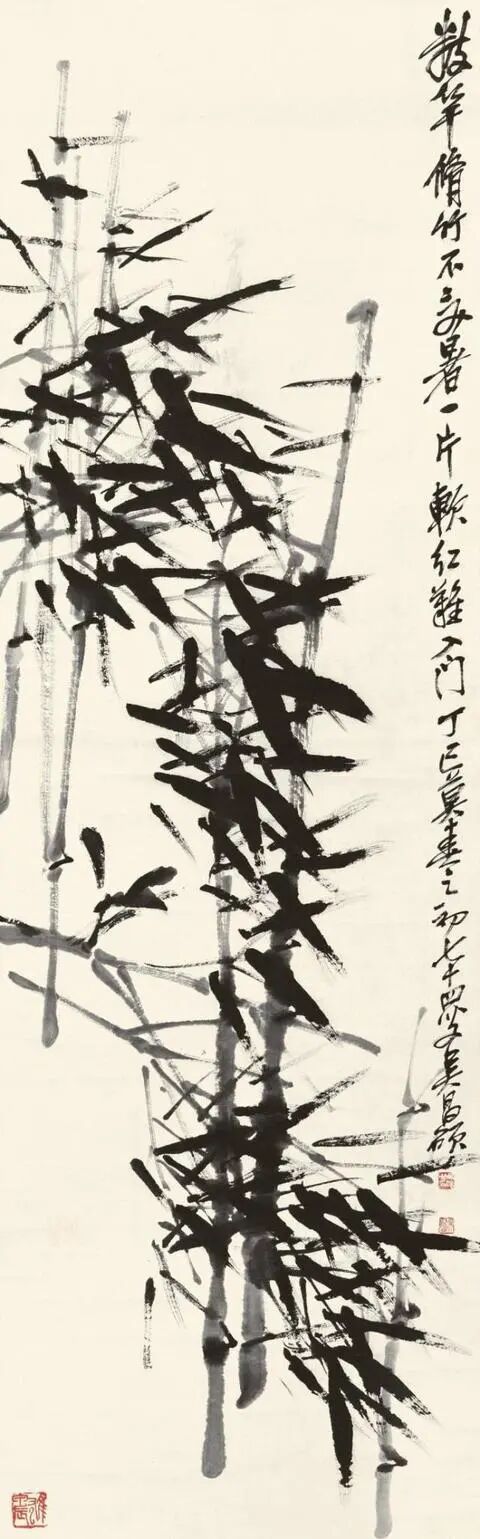 數竿脩竹不受暑一片軟紅難入門丁巳莫春之初七十四叟吳昌碩